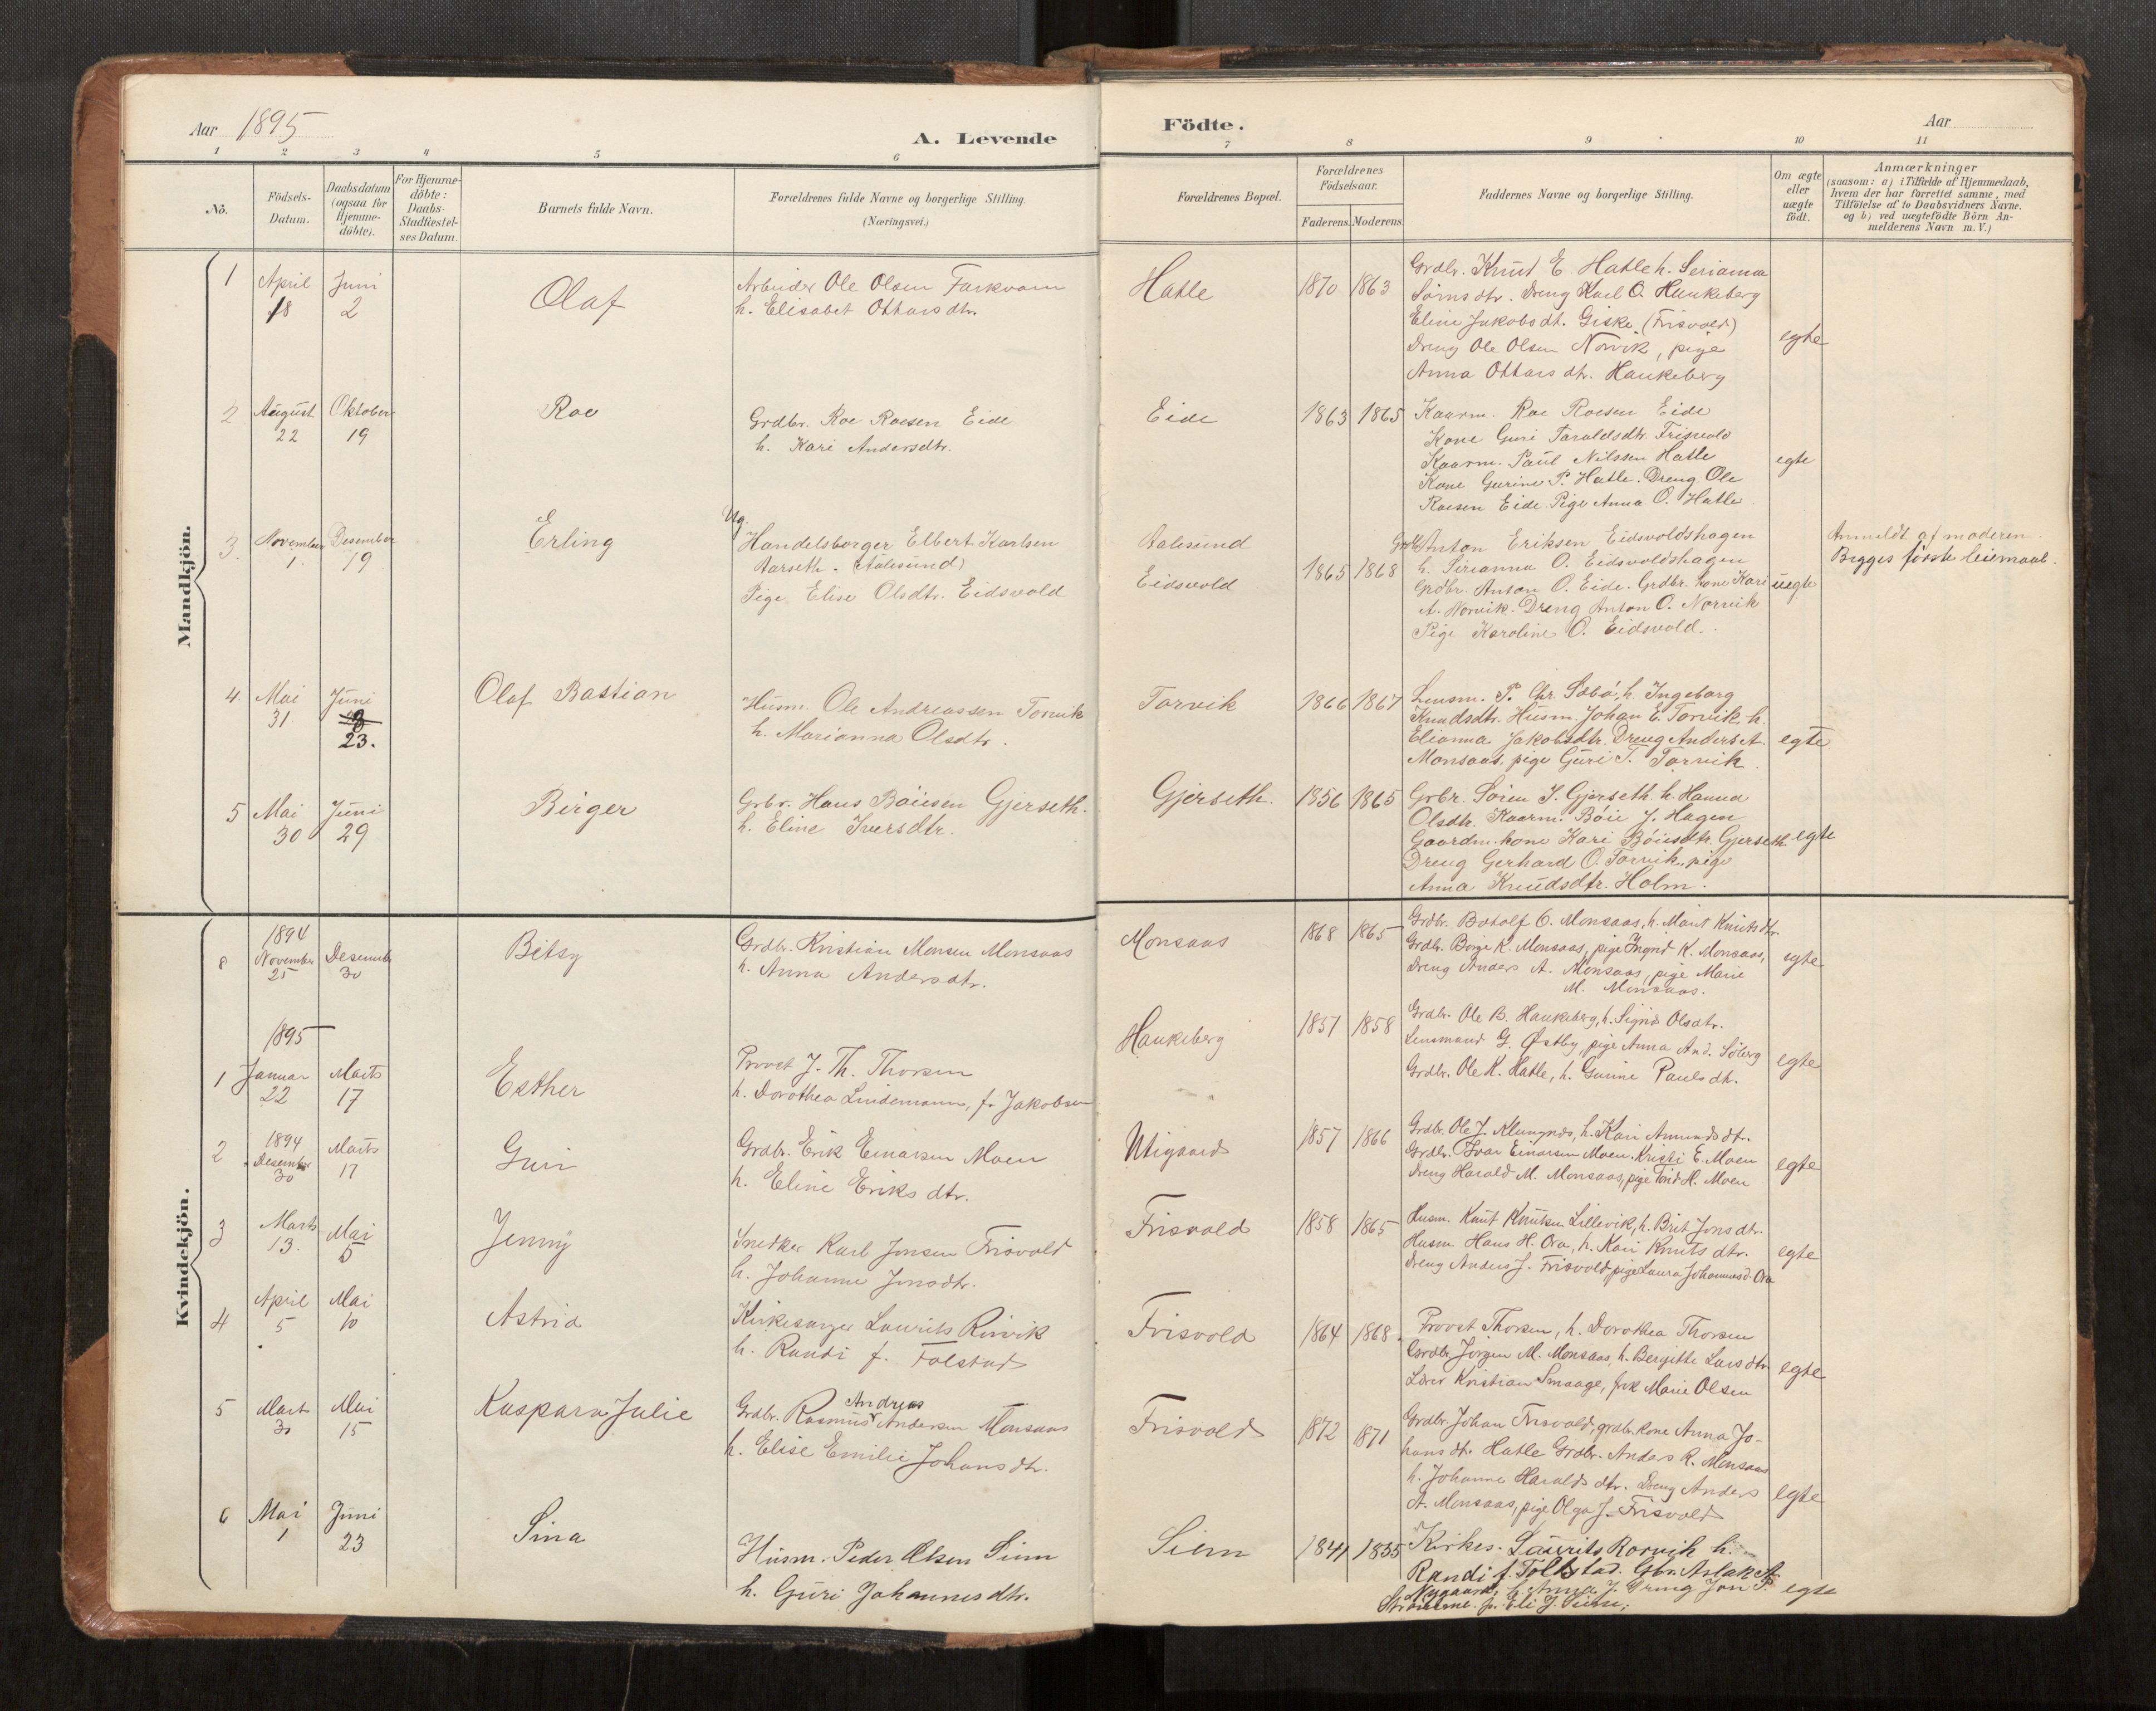 Aar 1895
A. Levende
Födte.
Aar
1 2 3 4 5 6 7 8 9 10 11
Nö.
Födsels-
Datum.
Daabsdatum
(ogsaa for
Hjemme-
döbte).
For Hjemme-
döbte:
Daabs-
Stadfæstel-
ses Datum.
Barnets fulde Navn.
Forældrenes fulde Navne og borgerlige Stilling.
(Næringsvei.)
Forældrenes Bopæl.
Forældrenes
Födselsaar.
Faderens. Moderens.
Faddernes Navne og borgerlige Stilling.
Om ægte
eller
uægte
födt.
Anmærkninger
(saasom: a) i Tilfælde af Hjemmedaab,
hvem der har forrettet samme, med
Tilföielse af to Daabsvidners Navne.
og b) ved uægtefödte Börn An-
melderens Navn m. V.)
Mandkjön.
1
April
18
Juni
2
Olaf
Arbeider Ole Olsen Farkvam
h. Elisabet Ottarsdtr.
Hatle
1870 1863
Grdbr. Knut E. Hatle h. Serianna
Sörnsdtr. Dreng Karl O. Haukeberg
Eline Jakobsdt. Giske (Frisvold)
Dreng Ole Olsen Norvik, pige
Anna Ottarsdtr. Haukeberg
egte
2
August
22
Oktober
19
Roe
Grdbr. Roe Roesen Eide
h. Kari Andersdtr.
Eide
1863 1865
Kaarm. Roe Roesen Eide
Kone Guri Taraldsdtr. Frisvold
Kaarm. Paul Nilssen Hatle
Kone Gurine P. Hatle. Dreng Ole
Roesen Eide Pige Anna O. Hatle
egte
3.
November
1.
Desember
19
Erling
Ug.
Handelsborger Elbert Karlsen
Aarseth. (Aalesund)
Pige Elise Olsdtr. Eidsvold
Aalesund
Eidsvold
1865 1868
Grdb. Anton Eriksen Eidsvoldshagen
h. Serianna O. Eidsvoldshagen
Grdbr. Anton O. Eide. Grdbr. kone Kari
A. Norvik. Dreng Anton O. Norvik
Pige Karoline O. Eidsvold.
uegte
Anmeldt af moderen.
Begges förste leiermaal.
4.
Mai
31.
Juni
23.
Olaf Bastian
Husm. Ole Andreassen Torvik
h. Marianna Olsdtr.
Torvik
1866 1867
Lensm. P. Chr. Sæbö, h. Ingeborg
Knudsdtr. Husm. Johan E. Torvik, h.
Elianna Jakobsdtr. Dreng Anders A.
Monsaas, pige Guri T. Torvik.
egte
5
Mai
30
Juni
29
Birger
Grbr. Hans Böiesen Gjerseth.
h. Eline Iversdtr.
Gjerseth.
1856 1865
Grbr. Sören J. Gjerseth. h. Hanna
Olsdtr. Kaarm. Böie J. Hagen
Gaardm. kone Kari Böiesdtr. Gjerseth
Dreng Gerhard O. Torvik, pige
Anna Knudsdtr. Holm.
egte
Kvindekjön.
8
1894
November
25
Desember
30
Betsy
Grdbr. Kristian Monsen Monsaas
h. Anna Andersdtr.
Monsaas
1868 1865
Grdbr. Botolf O. Monsaas, h. Marit Knutsdtr.
Grdbr. Börge K. Monsaas, pige Ingrid K. Monsaas,
Dreng Anders A. Monsaas, pige Marie
M. Monsaas.
egte
1895
1
Januar
22
Marts
17
Esther
Provst J. Th. Thorsen
h. Dorothea Lindemann, f. Jakobsen
Haukeberg
1857 1858
Grdbr. Ole B. Haukeberg, h. Sigrid Olsdtr.
Lensmand G. Østby, pige Anna And. Söberg
Grdbr. Ole K. Hatle, h. Gurine Paulsdtr.
egte
2
1894
Desember
30
Marts
17
Guri
Grdbr. Erik Einarsen Moen
h. Eline Eriksdtr.
Utigaard
1857 1866
Grdbr. Ole J. Klungnes, h. Kari Amundsdt.
Grdbr. Ivar Einarsen Moen. Kristi E. Moen
Dreng Harald M. Monsaas, pige H. Moen
egte
3
Marts
13.
Mai
5
Jenny
Snedker Karl Jonsen Frisvold
h. Johanne Jonsdtr.
Frisvold
1858 1865
Husm. Knut Knutsen Lillevik, h. Brit Jonsdtr.
Husm. Hans H. Ora, h. Kari Knutsdtr.
Dreng Anders J. Frisvold, pige Laura Johannesd. Ora
egte
4
April
5
Mai
10
Astrid
Kirkesanger Laurits Rörvik
h. Randi f. Tolstad
Frisvold
1864 1868.
Provst Thorsen, h. Dorothea Thorsen
Gardbr. Jörgen M. Monsaas, h. Bergitte Larsdtr.
Lærer Kristian Smaage, frk Marie Olsen
egte
5
Mart
30
Mai
15
Kaspara Julie
Andreas
Grdbr. Rasmus Andersen Monsaas
h. Elise Emilie Johansdtr.
Frisvold
1872 1871
Grdbr. Johan Frisvold, grdbr. kone Anna Jo-
hansdtr. Hatle Grdbr. Anders R. Monsaas
h. Johanne Haraldsdtr. Dreng Anders
A. Monsaas, pige Olga J. Frisvold
egte
6
Mai
1
Juni
23
Sina
Husm. Peder Olsen Siem
h. Guri Johannesdtr.
Siem
1841 1855
Kirkes. Laurits Rorvik h.
Randi f. Tolkstad. Gbr. Aslak A.
Nygaard, h. Anna J. Dreng Jon P.
p. Eli J. Siem;
egte